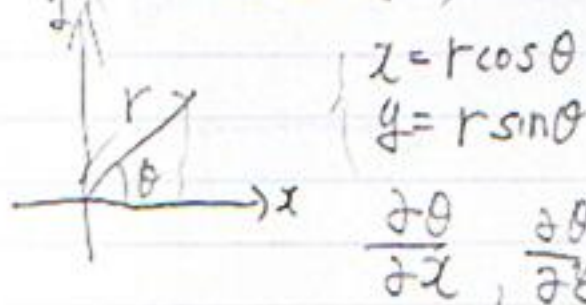 y
r
θ
x
x = r cos θ
y = r sin θ
∂θ/∂x , ∂θ